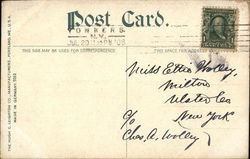 Post Card.
YONKERS
N.Y.
THIS SIDE MAY BE USED FOR CORRESPONDENCE
THIS SPACE FOR ADDRESS
Miss Ettie Wolley,
Milton
Ulster Co
New York
c/o
Chas. A. Wolley
THE HUGH C. LEIGHTON CO., MANUFACTURERS, PORTLAND, ME., U.S.A.
MADE IN GERMANY